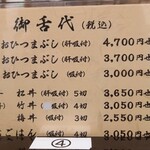 御舌代(税込)
おひつまぶし(肝吸付) 4,700円也
おひつまぶし(吸付) 3,700円也
おひつまぶし 3,000円也
丼(肝吸付) 5切 3,650円也
竹丼(吸付) 4切 3,050円也
梅丼(吸付) 3切 2,550円也
ごはん 4切 3,050円也
④